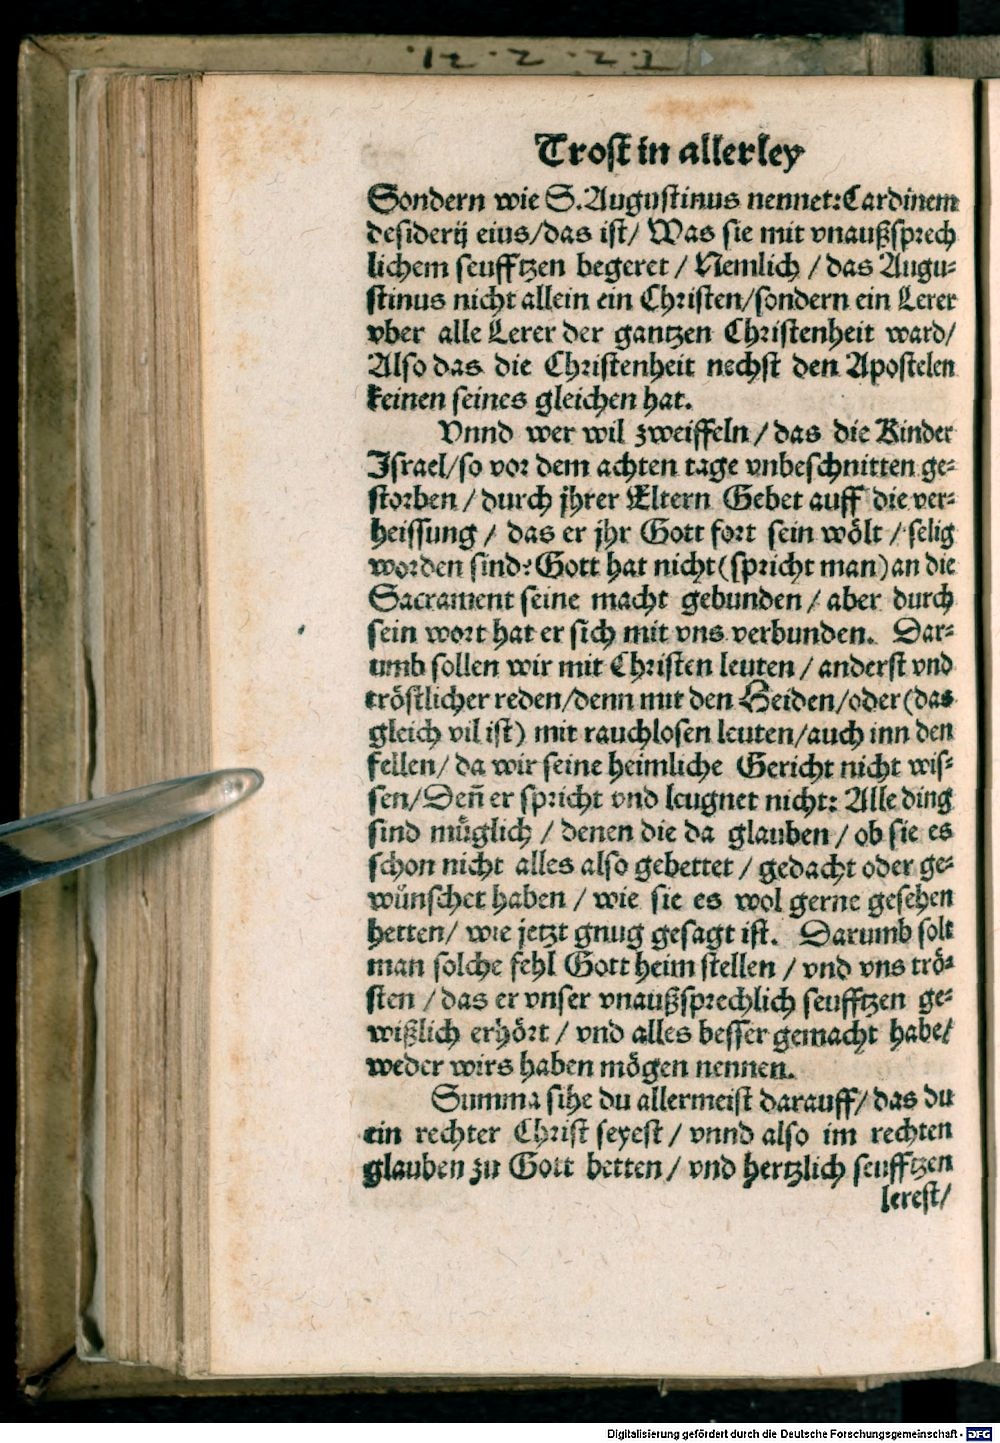 Trost in allerley
Sondern wie S. Augustinus nennet: Cardinem
desiderij eius/das ist/ Was sie mit vnaußsprech
lichem seufftzen begeret / Nemlich / das Augu-
stinus nicht allein ein Christen/sondern ein Lerer
vber alle Lerer der gantzen Christenheit ward/
Also das die Christenheit nechst den Apostelen
keinen seines gleichen hat.
Vnnd wer wil zweiffeln / das die Kinder
Israel/so vor dem achten tage vnbeschnitten ge-
storben / durch jhrer Eltern Gebet auff die ver-
heissung / das er jhr Gott fort sein wölt / selig
worden sind: Gott hat nicht (spricht man) an die
Sacrament seine macht gebunden / aber durch
sein wort hat er sich mit vns verbunden. Dar-
umb sollen wir mit Christen leuten / anderst vnd
tröstlicher reden/denn mit den Heiden/oder (das
gleich vil ist) mit rauchlosen leuten/auch inn den
fellen/ da wir seine heimliche Gericht nicht wis-
sen/Deñ er spricht vnd leugnet nicht: Alle ding
sind müglich / denen die da glauben / ob sie es
schon nicht alles also gebettet / gedacht oder ge-
wünschet haben / wie sie es wol gerne gesehen
hetten/ wie jetzt gnug gesagt ist. Darumb solt
man solche fehl Gott heim stellen / vnd vns trö-
sten / das er vnser vnaußsprechlich seufftzen ge-
wißlich erhört / vnd alles besser gemacht habe/
weder wirs haben mögen nennen.
Summa sihe du allermeist darauff/ das du
ein rechter Christ seyest / vnnd also im rechten
glauben zu Gott betten / vnd hertzlich seufftzen
lerest/
Digitalisierung gefördert durch die Deutsche Forschungsgemeinschaft - DFG